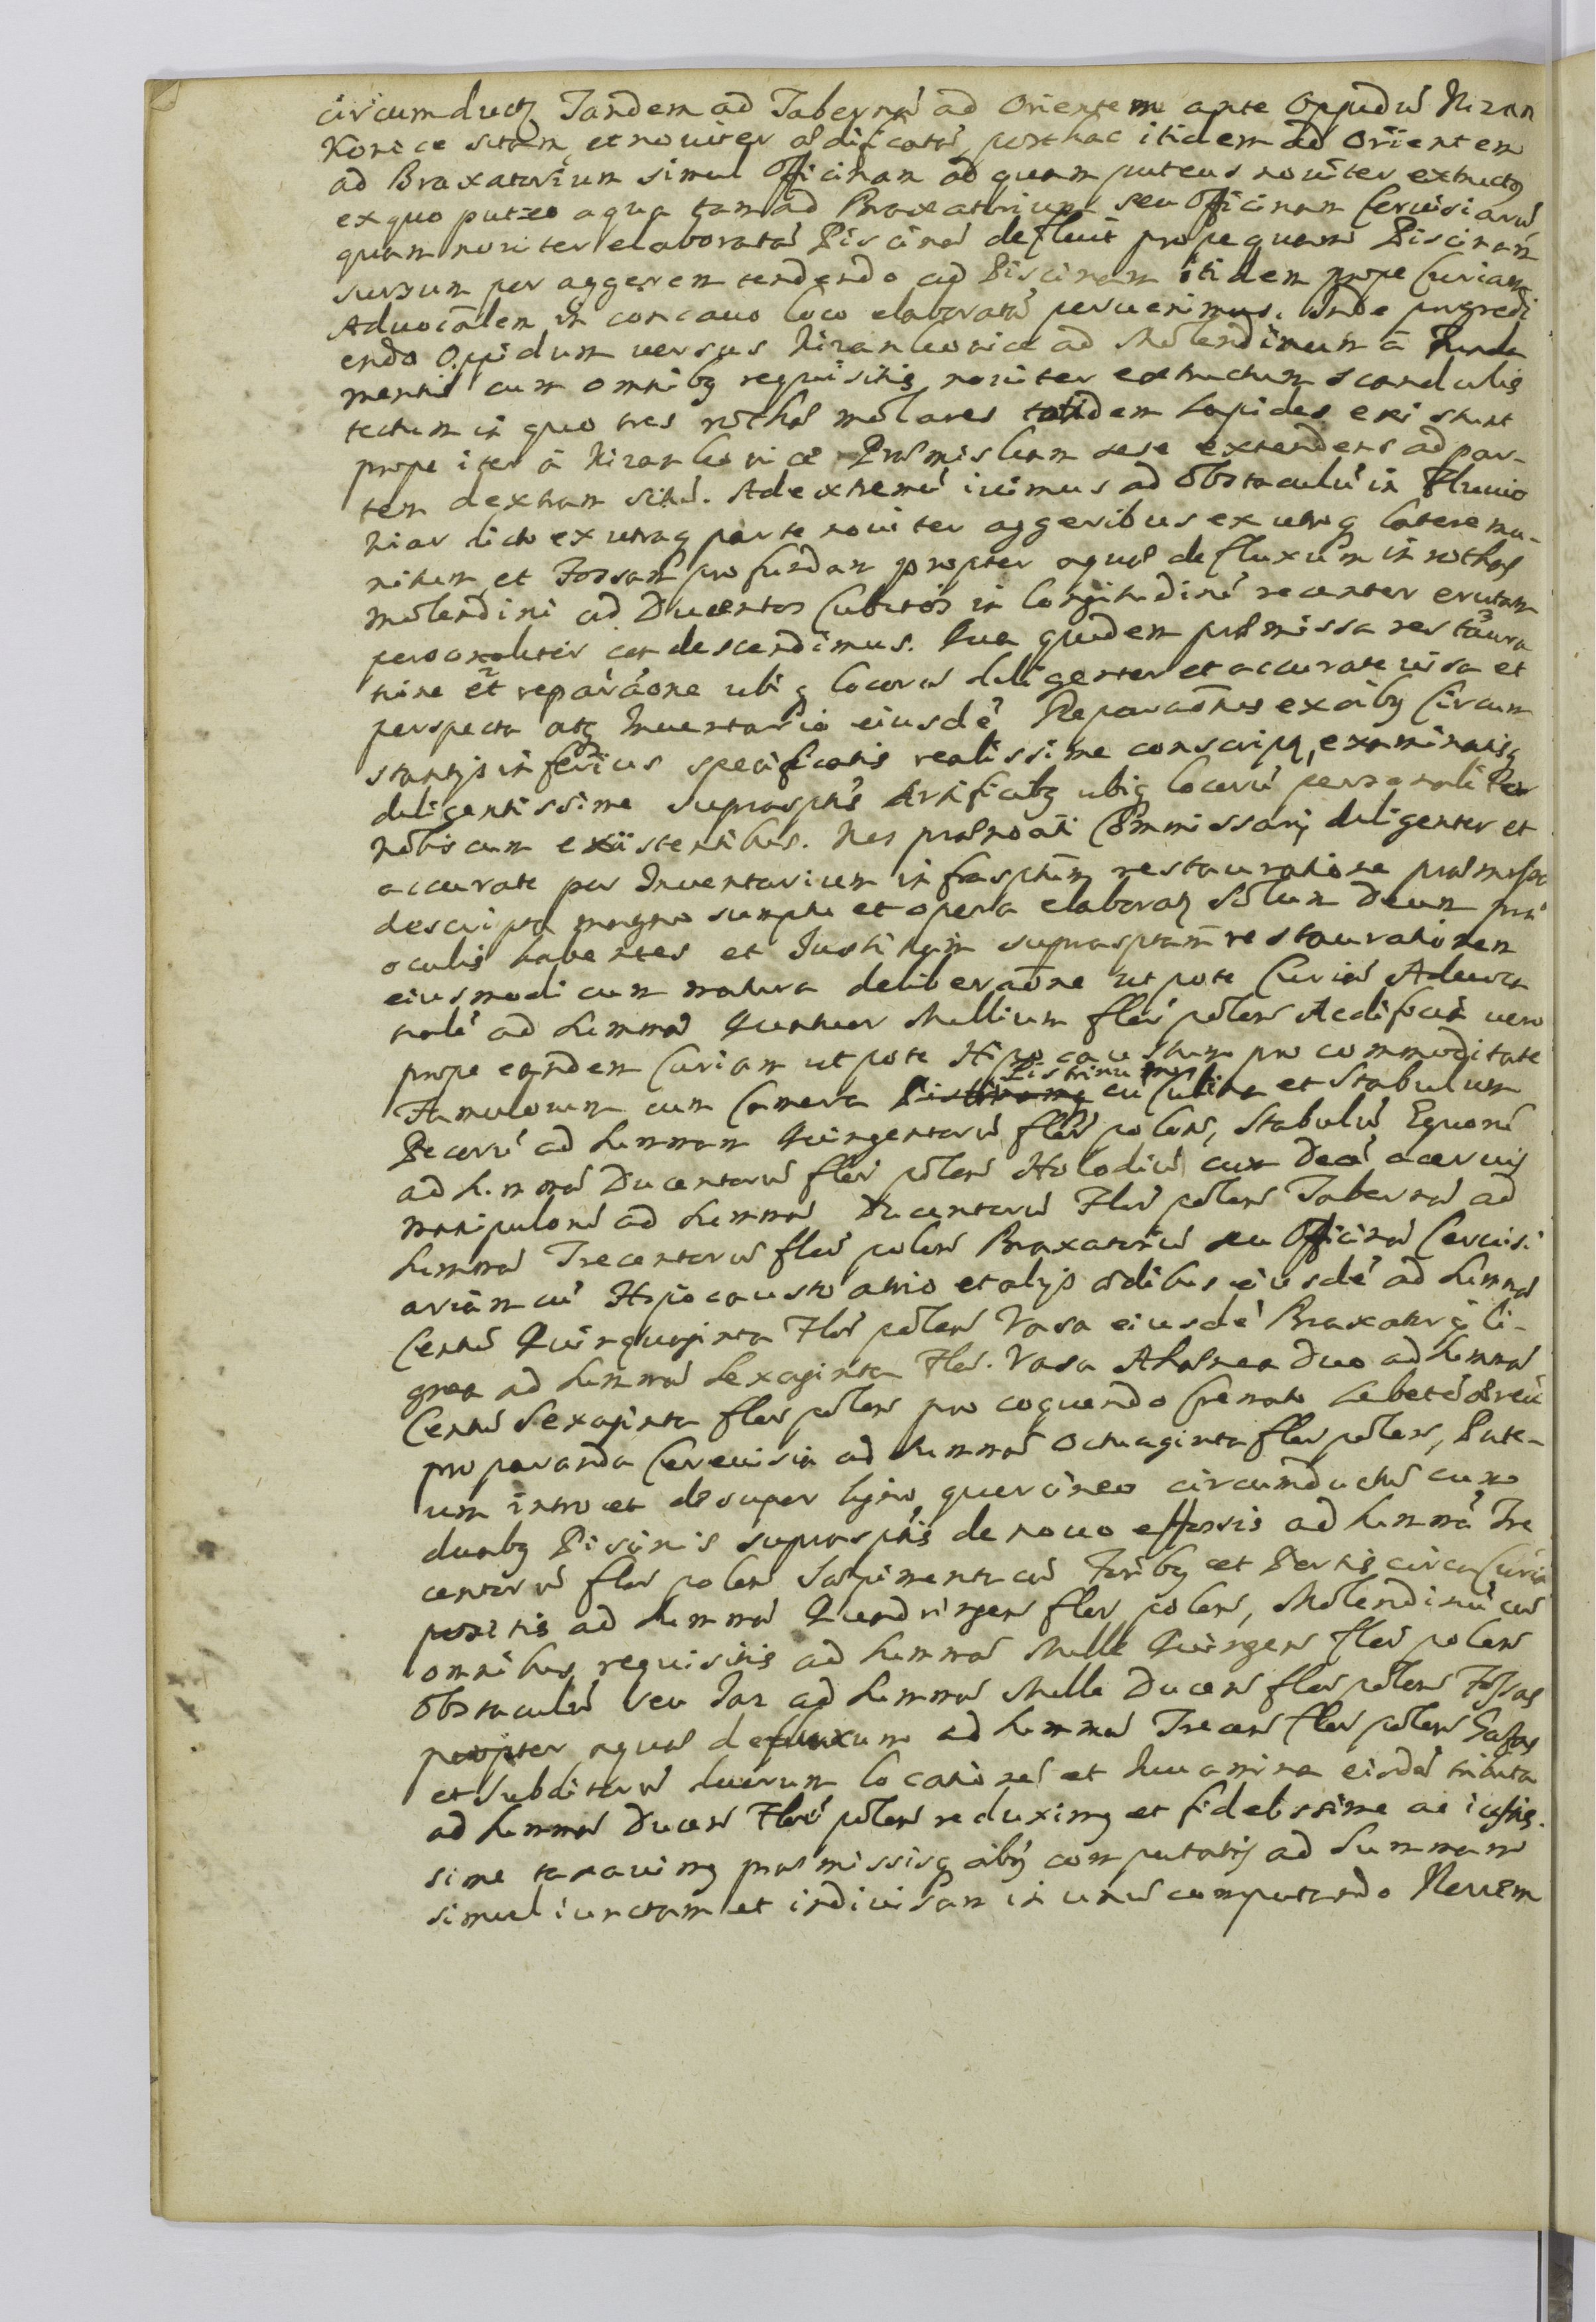 circumducti Tandem ad Tabernā ad Orientem ante Oppidū Nizan
Kowice sitam et noviter ædificatā, posthac itidem ad Orientem
ad Braxatorium simul Officinam ad quam puteus noviter extructq
ex quo puteo aqua tam ad Braxatorium seu Officinam Cervisiarū
quam noviter elaboratā Piscinā defluit prope quam Piscinam
sursum per aggerem tendendo ad Piscinam itidem prope Curiam
Advocālem in concavo loco elaboratā pervenimus. Inde progredi
endo Oppidum versus Nizankowice ad Molendinum à Funda
mentis cum omnibq requisitis noviter extructum scandulis
tectum in quo tres rothæ molares totidem lapides existunt
prope iter à Nizankowice Præmisliam sese extendens ad par-
tem dextram sitū. Ad extremū ivimus ad Obstaculū in Fluvio
Wiar dicto ex utraq parte noviter aggeribus ex utroq latere mu-
nitum et Fossam profundam propter aquæ defluxum in rothas
molendini ad Ducentos Cubitos in longitudine recenter erutam
personaliter condescendimus. Qua quidem præmissa restaura
tione et reparāone ubiq locorū diligenter et accurate visa et
perspecta atq Inventario eiusdē Reparaōnis ex oībq Circum
stantijs inferius specificatis realissime conscripto, examinatisq
diligentissime suprasptis Artificibq ubiq locorū personaliter
nobiscum existentibus. Nos prænoāti Commissarij diligenter et
accurate per Inventarium infrasptum restauratione præmissa
descripta magno sumptu et opera elaborata Solum Deum præ
oculis habentes et Justitiam suprasptam restaurationem
eiusmodi cum matura deliberaōne utpote Curiā Advoca
talē ad Summā Quatuor Millium flor polon Aedificia vero
prope eandem Curiam utpote Hipocaustum pro commoditate
Famulorum cum Camera Pistrinum cū Culina et Stabulum
Pecorū ad Summam Quingentorū flor polon, Stabulū Equorū
ad Summā Ducentorū flor polon Holodiū cum Decē acervis
manipulorū ad Summā Ducentorū Flor polon Tabernā ad
Summā Trecentorū flor polon Braxatoriū seu Officinā Cervisi
ariam cū Hipocausto atrio et alijs ædibus eiusdē ad Summā
Centū Quinquaginta Flor polon Vasa eiusdē Braxatorij li-
gnea ad Summā Sexaginta Flor. Vasa Ahænea Duo ad Summā
Centū Sexaginta flor polon pro coquendo Cremato Lebetē æreū
pro paranda Cerevisia ad Summā Octuaginta flor polon, Pute-
um intro et desuper ligno querceneo circumductū cum
duabq Piscinis suprasptis de novo effossis ad Summā Tre
centorū flor polon Sæpimenta cū Foribq et Portis circa Curiā
positis ad Summā Quadringen flor polon, Molendinū cū
omnibus requisitis ad Summā Mille Quingen flor polon
Obstaculū seu Jaz ad Summā Mille Ducen flor polon Fossas
propter aquæ defluxum ad Summā Trecen flor polon
et Subditorū suorum locationes et Iuvamina eisdē tributa
ad Summā Ducen Flor polon reduximq et fidelissime ac iustis-
sime taxavimq præmissisq oībq computatis ad Summam
simul iunctam et indivisam in unū computando Novem